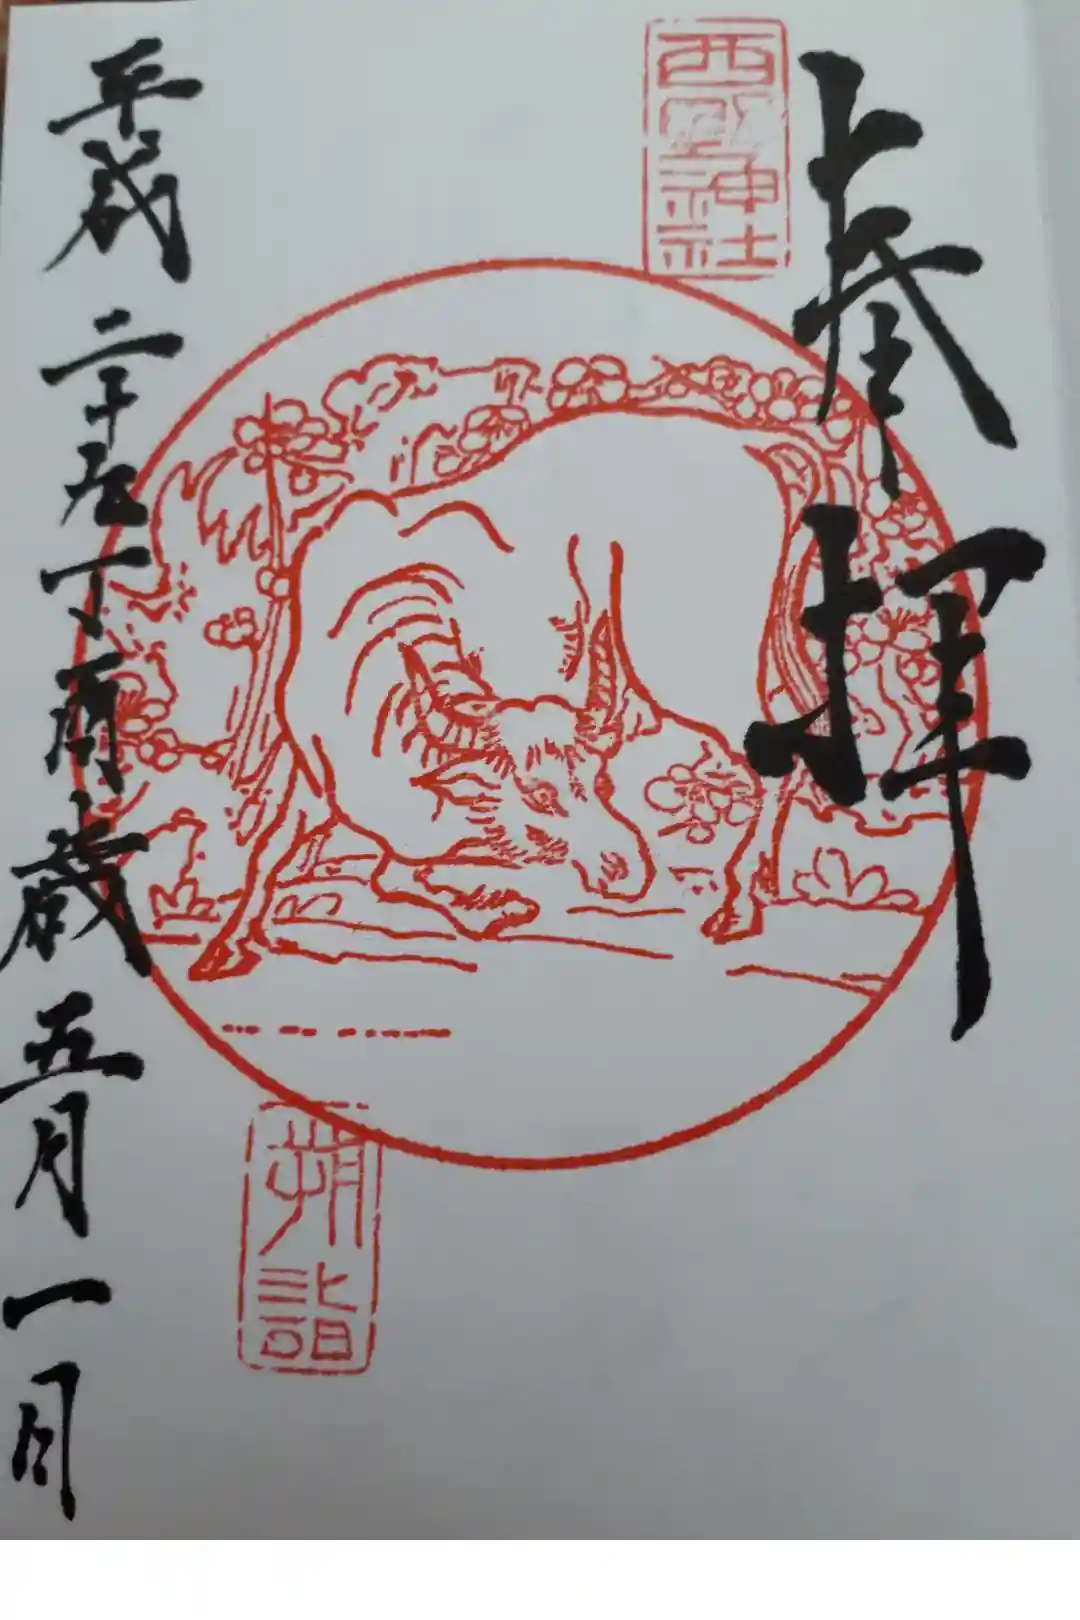 奉拝
西野神社
平成二十九丁酉歳五月一日
朔詣